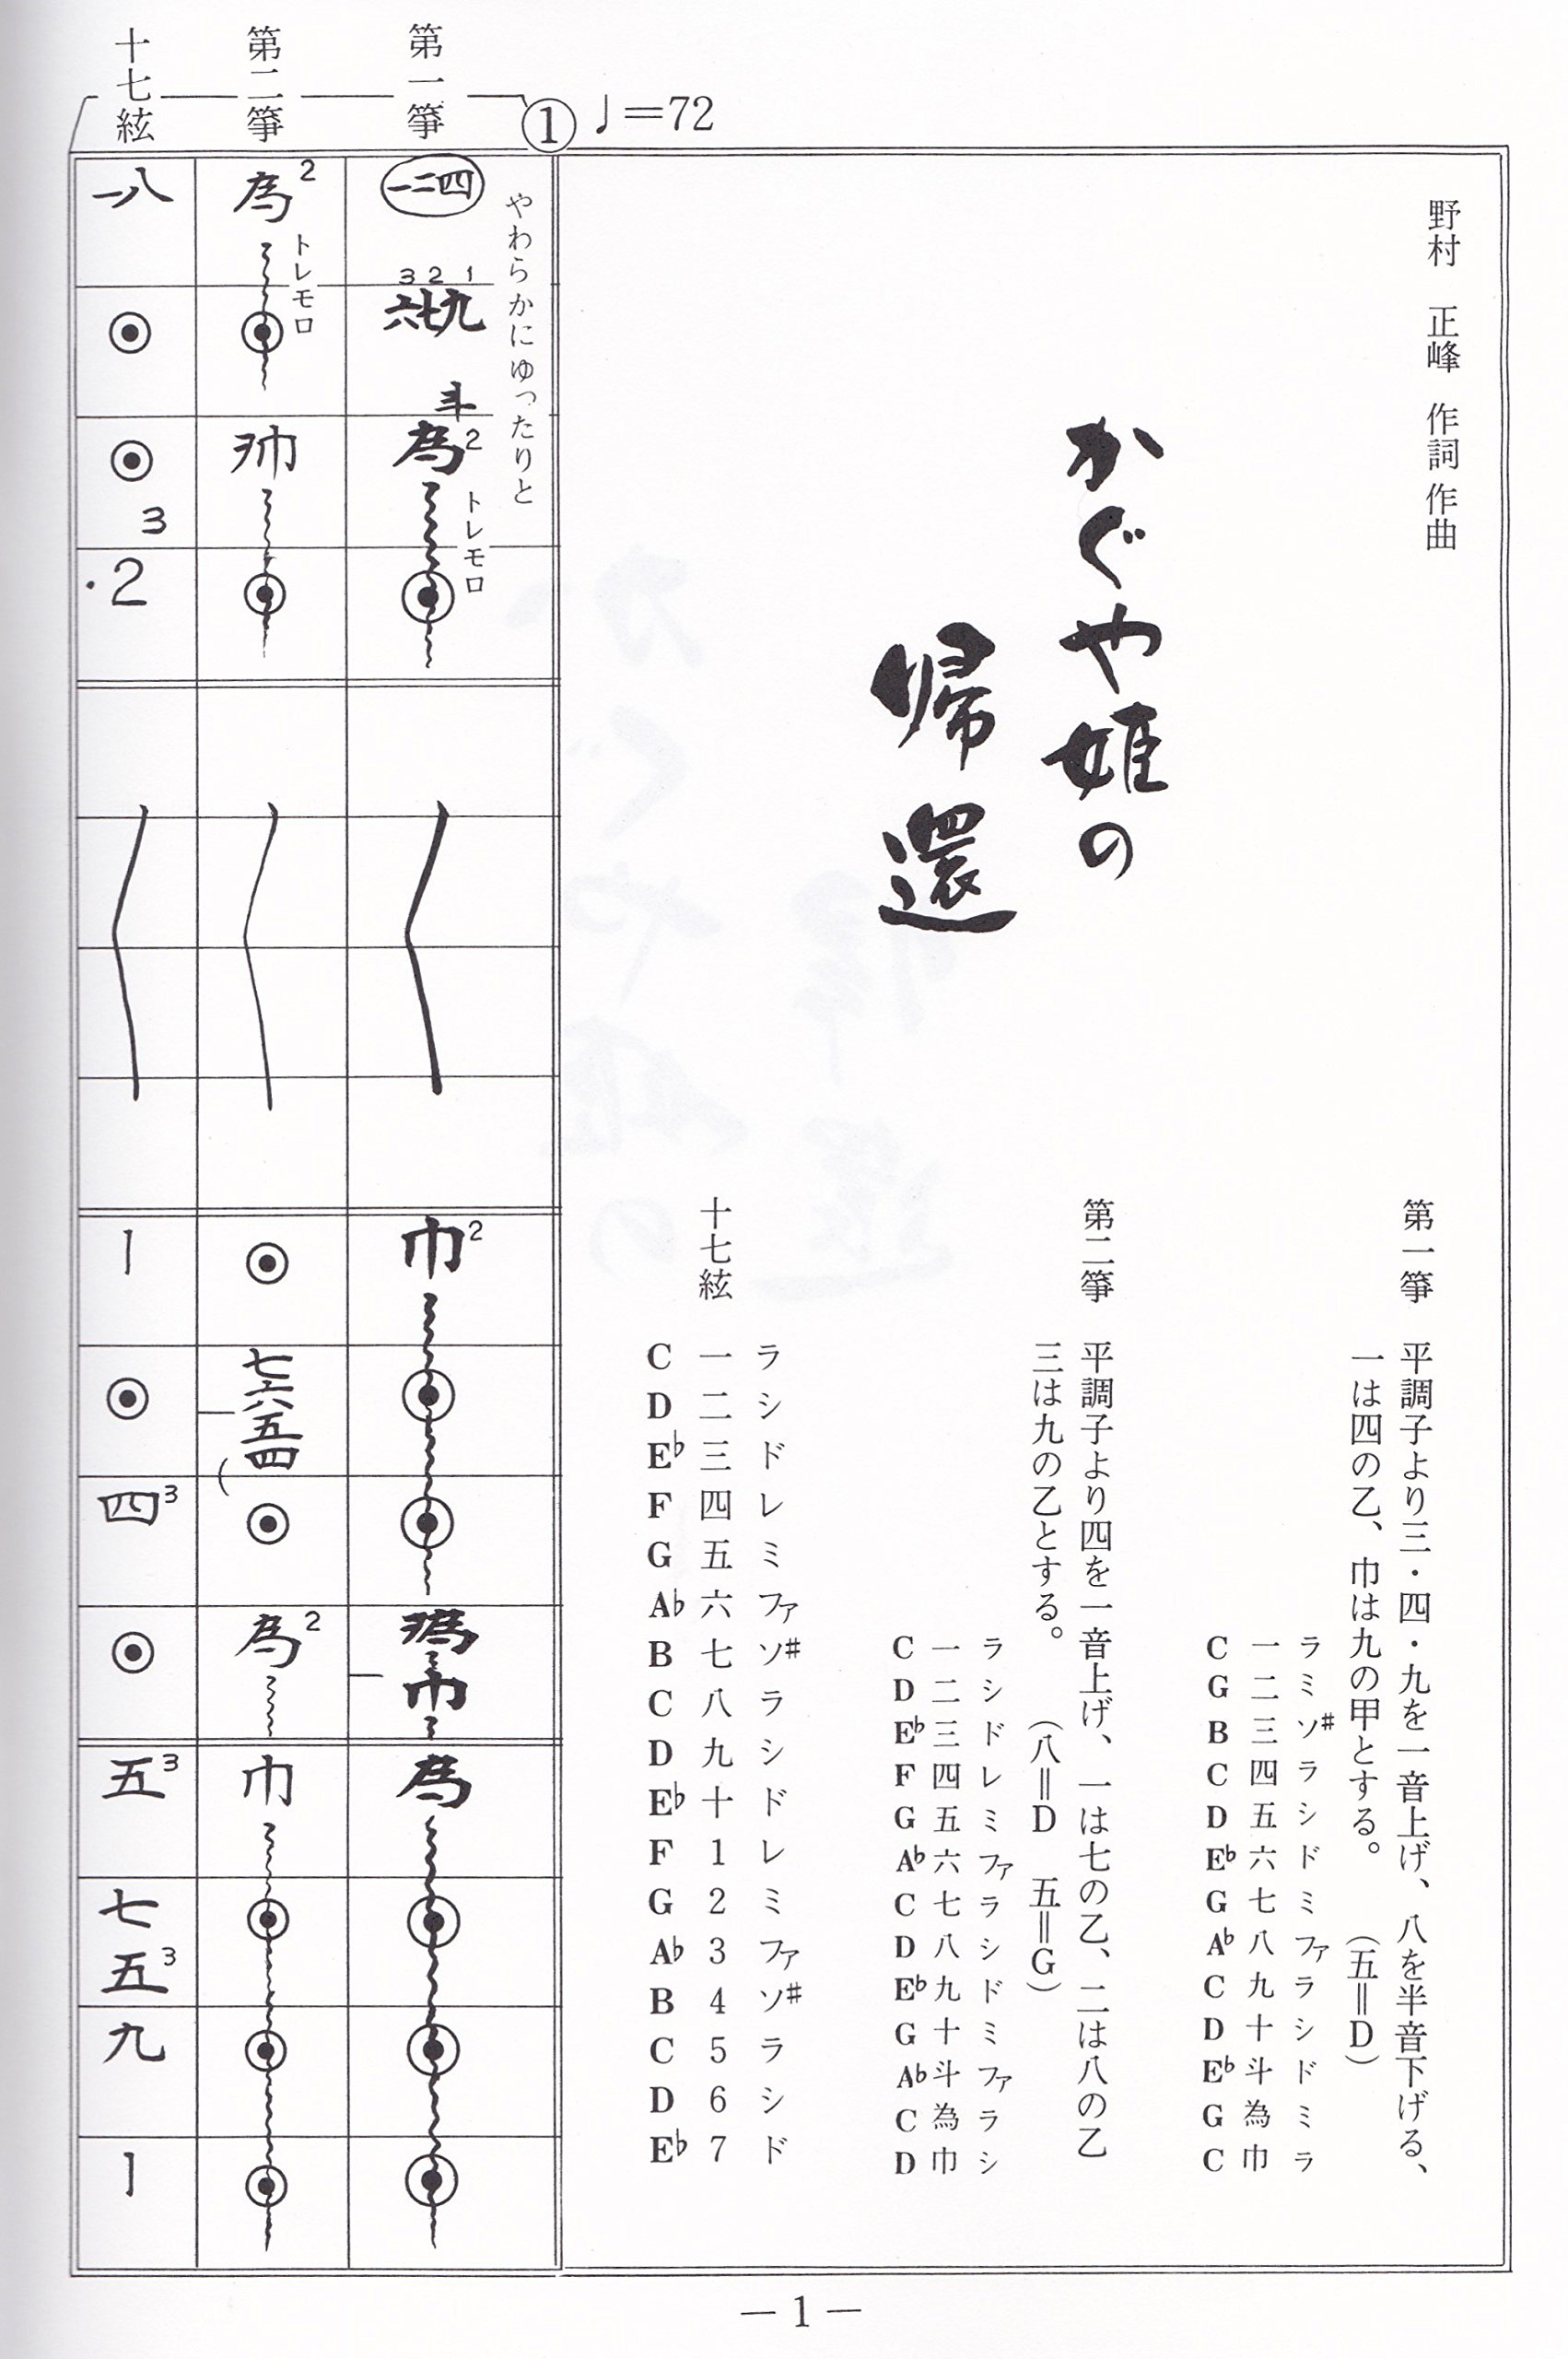 野村 正峰 作詞 作曲
かぐや姫の
帰還
第一箏 平調子より三・四・九を一音上げ、八を半音下げる、
一は四の乙、巾は九の甲とする。 (五=D)
ラ ミ ソ♯ ラ シ ド ミ ファ ラ シ ド ミ ラ
一 二 三 四 五 六 七 八 九 十 斗 為 巾
C G B C D E♭ G A♭ C D E♭ G C
第二箏 平調子より四を一音上げ、一は七の乙、二は八の乙
三は九の乙とする。 (八=D 五=G)
ラ シ ド レ ミ ファ ラ シ ド ミ ファ ラ シ
一 二 三 四 五 六 七 八 九 十 斗 為 巾
C D E♭ F G A♭ C D E♭ G A♭ C D
十七絃
ラ シ ド レ ミ ファ ソ♯ ラ シ ド レ ミ ファ ソ♯ ラ シ ド
一 二 三 四 五 六 七 八 九 十 1 2 3 4 5 6 7
C D E♭ F G A♭ B C D E♭ F G A♭ B C D E♭
① ♩=72
やわらかにゆったりと
第一箏
一二四
3 2 1
六七九
斗
為2
トレモロ
巾2
巾
為
第二箏
為2
トレモロ
七六五四
為2
巾
十七絃
一八
3
・2
1
四3
五3
七
五3
九
1
— 1 —